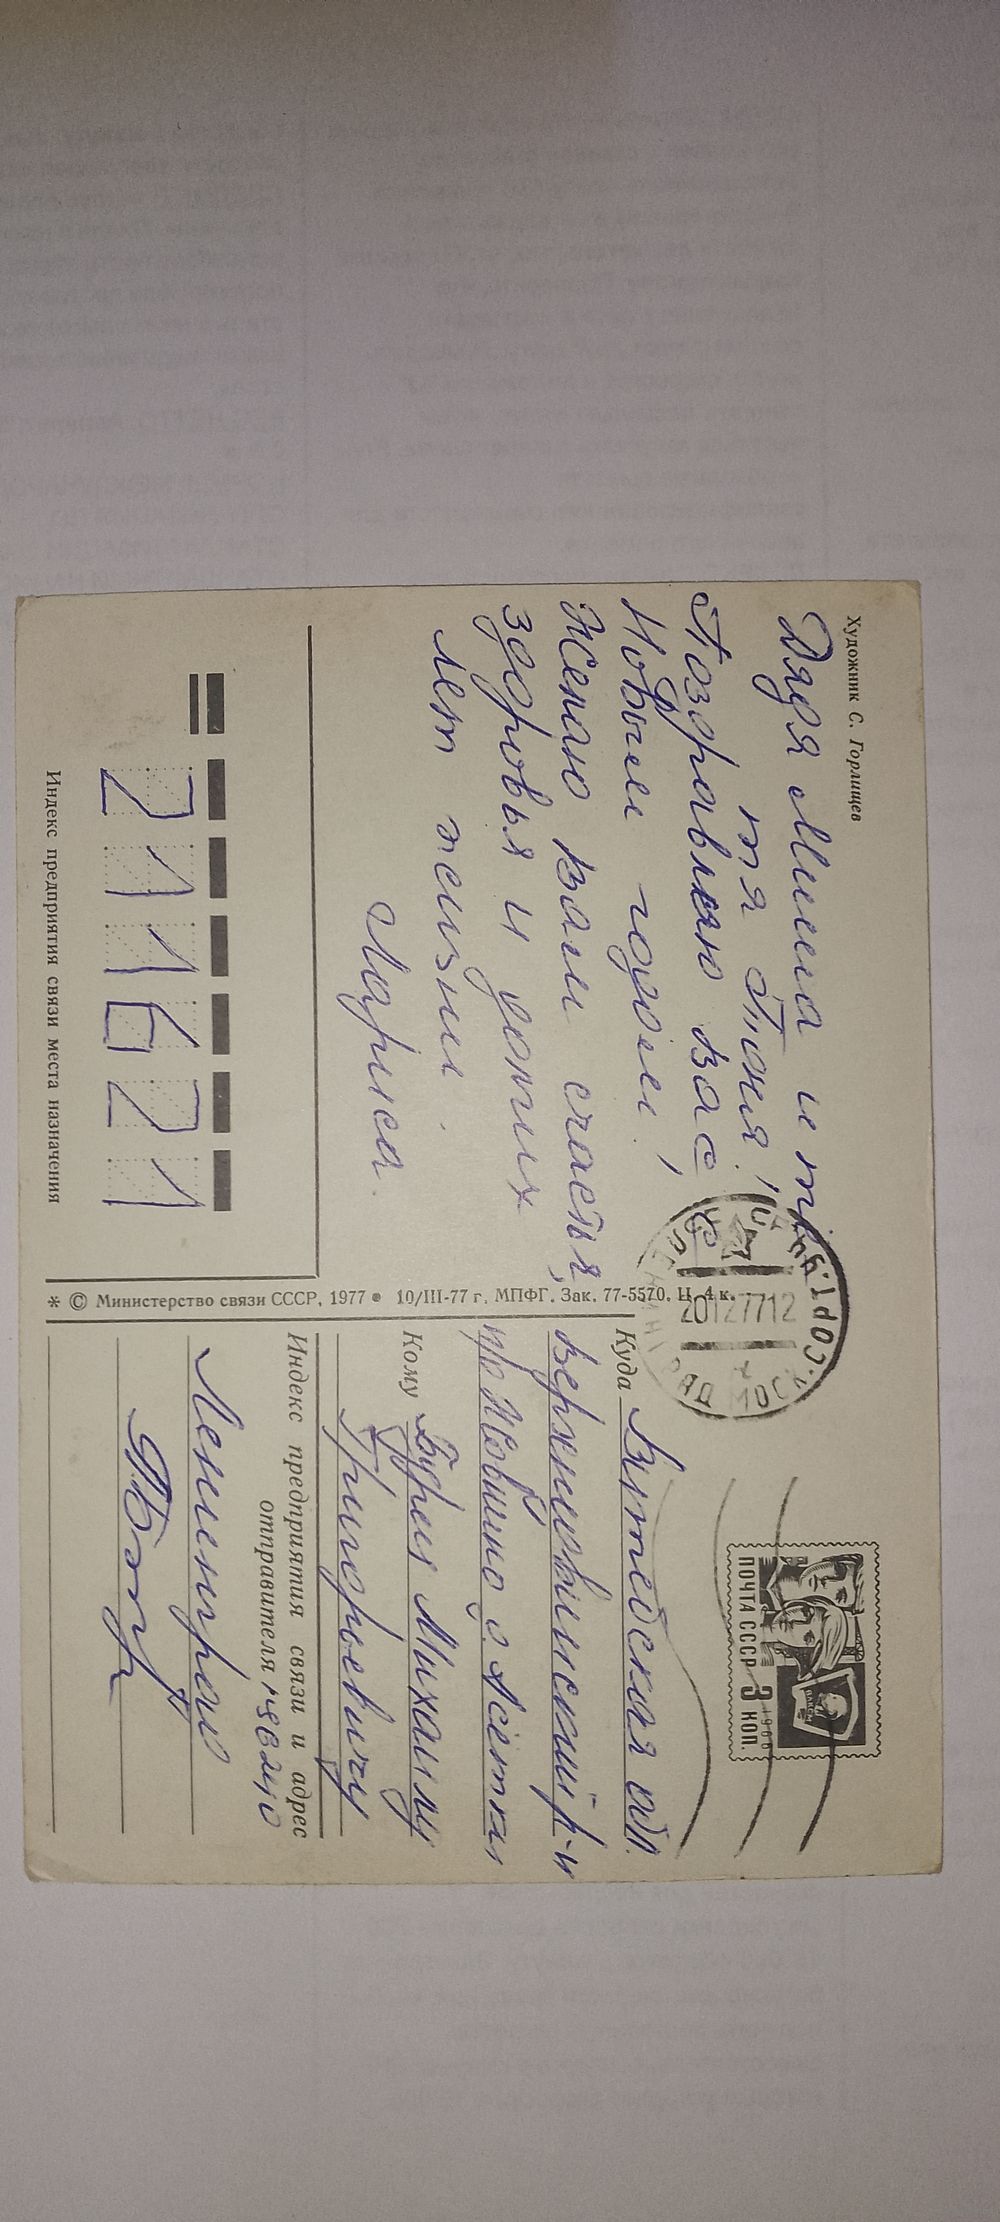 Художник С. Горлищев
Дядя Миша и тё
тя Тоня!
Поздравляю вас с
Новым годом!
Желаю вам счастья,
здоровья и долгих
лет жизни.
Лариса.
211621
Индекс предприятия связи места назначения
* © Министерство связи СССР, 1977 • 10/III-77 г. МПФГ. Зак. 77-5570. Ц. 4 к.
20127712
ПОЧТА СССР 3 КОП.
1966
Куда Витебская обл.
Верхнедвинский р-н
п/о
Кому Михаилу
Григорьевичу
Индекс предприятия связи и адрес
отправителя
Ленинград